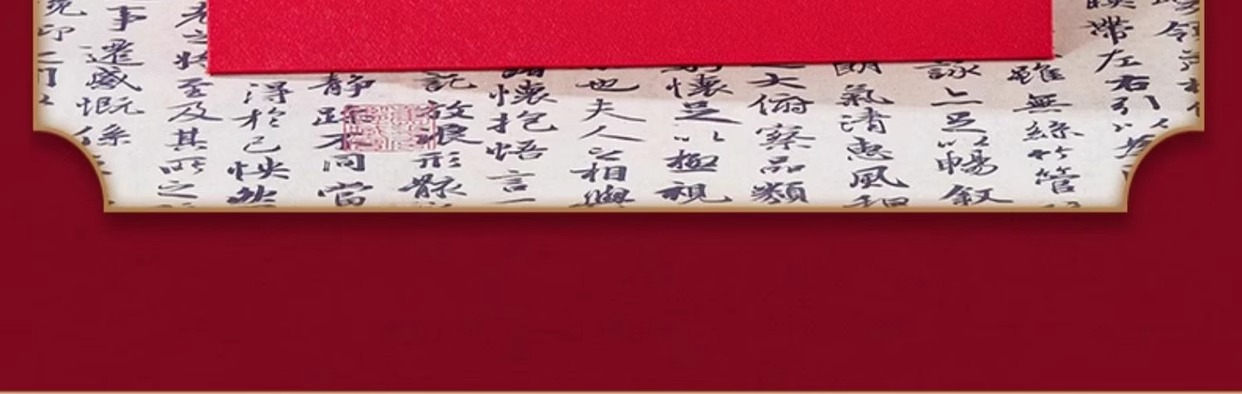 帶左右引以
雖無絲竹管
詠亦足以暢叙
朗氣清惠風和
大俯察品類
懷足以極視
也夫人之相與
諸懷抱悟言一
託放浪形骸
靜躁不同當
得於己怏然
老之將至及其所之
事遷感慨係